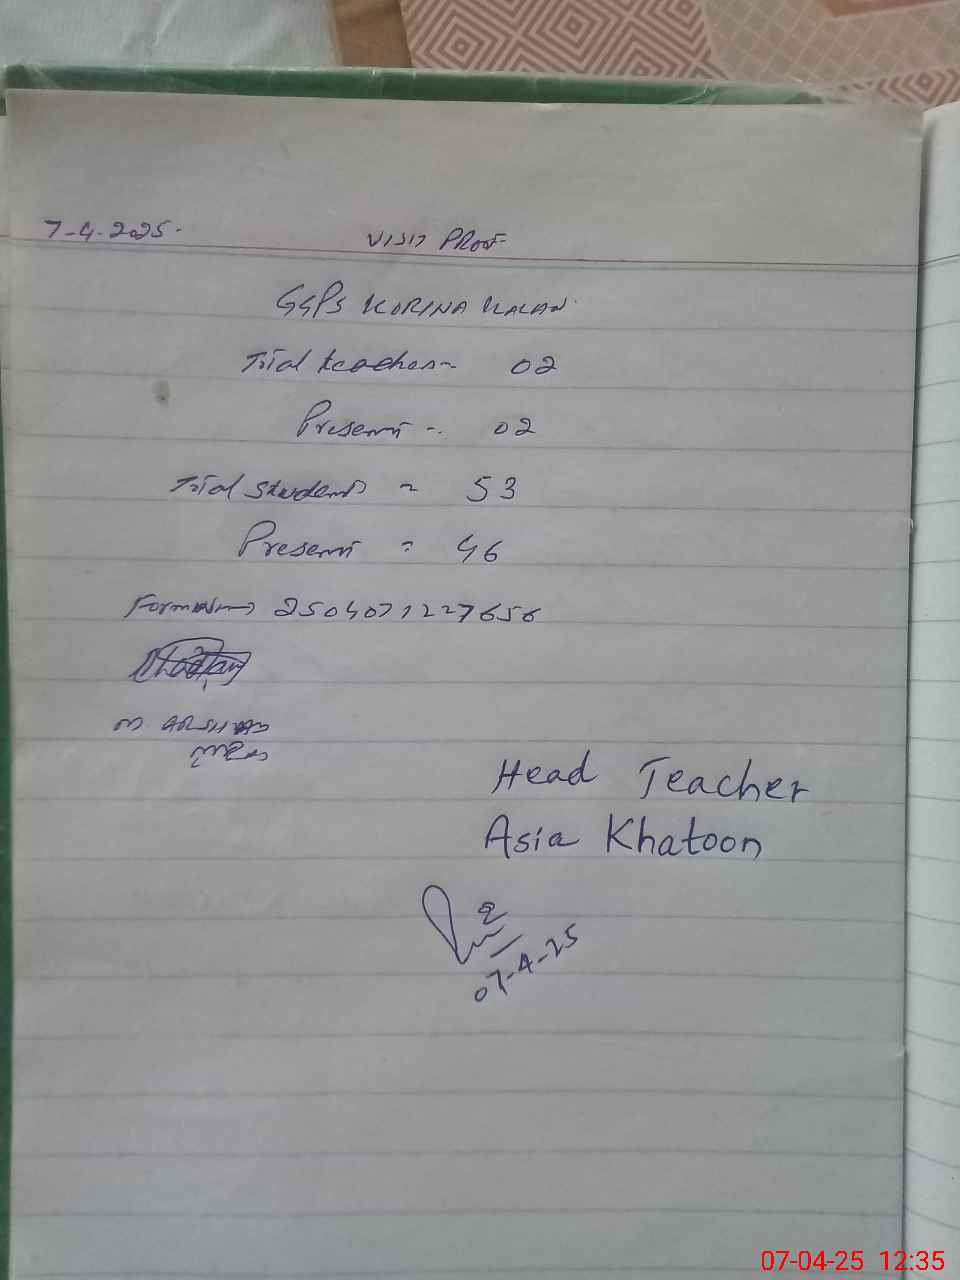 7-4-2025. VISIT PROOF
GGPS KORINA KALAN.
Total teachers - 02
Present - 02
Total students = 53
Present = 46
2504071227656
M. ARSHAD
Head Teacher
Asia Khatoon
07-4-25
07-04-25 12:35